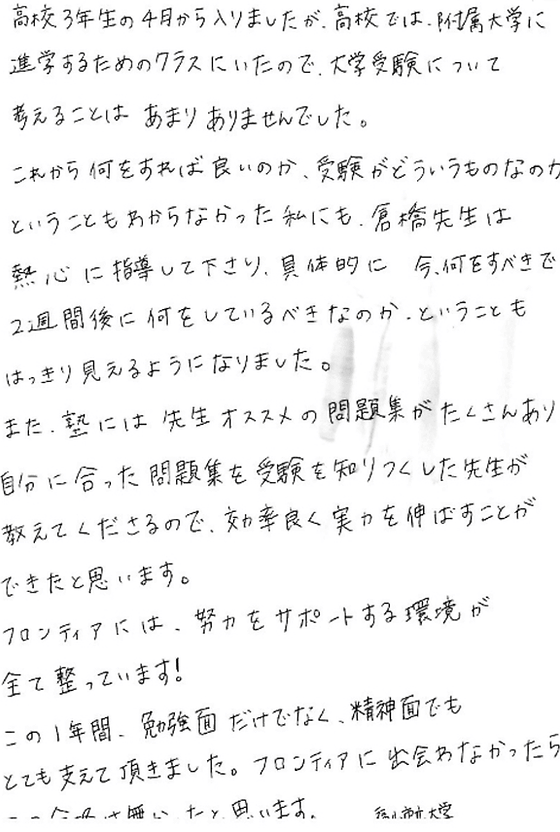 高校3年生の4月から入りましたが、高校では、附属大学に
進学するためのクラスにいたので、大学受験について
考えることは あまりありませんでした。
これから何をすれば良いのか、受験がどういうものなのか
ということもわからなかった私にも、倉橋先生は
熱心に指導して下さり、具体的に 今、何をすべきで
2週間後に何をしているべきなのか、ということも
はっきり見えるようになりました。
また、塾には先生オススメの問題集がたくさんあり
自分に合った問題集を受験を知りつくした先生が
教えてくださるので、効率良く実力を伸ばすことが
できたと思います。
フロンティアには、努力をサポートする環境が
全て整っています!
この1年間、勉強面だけでなく、精神面でも
とても支えて頂きました。フロンティアに出会わなかったら
と思います。 大学